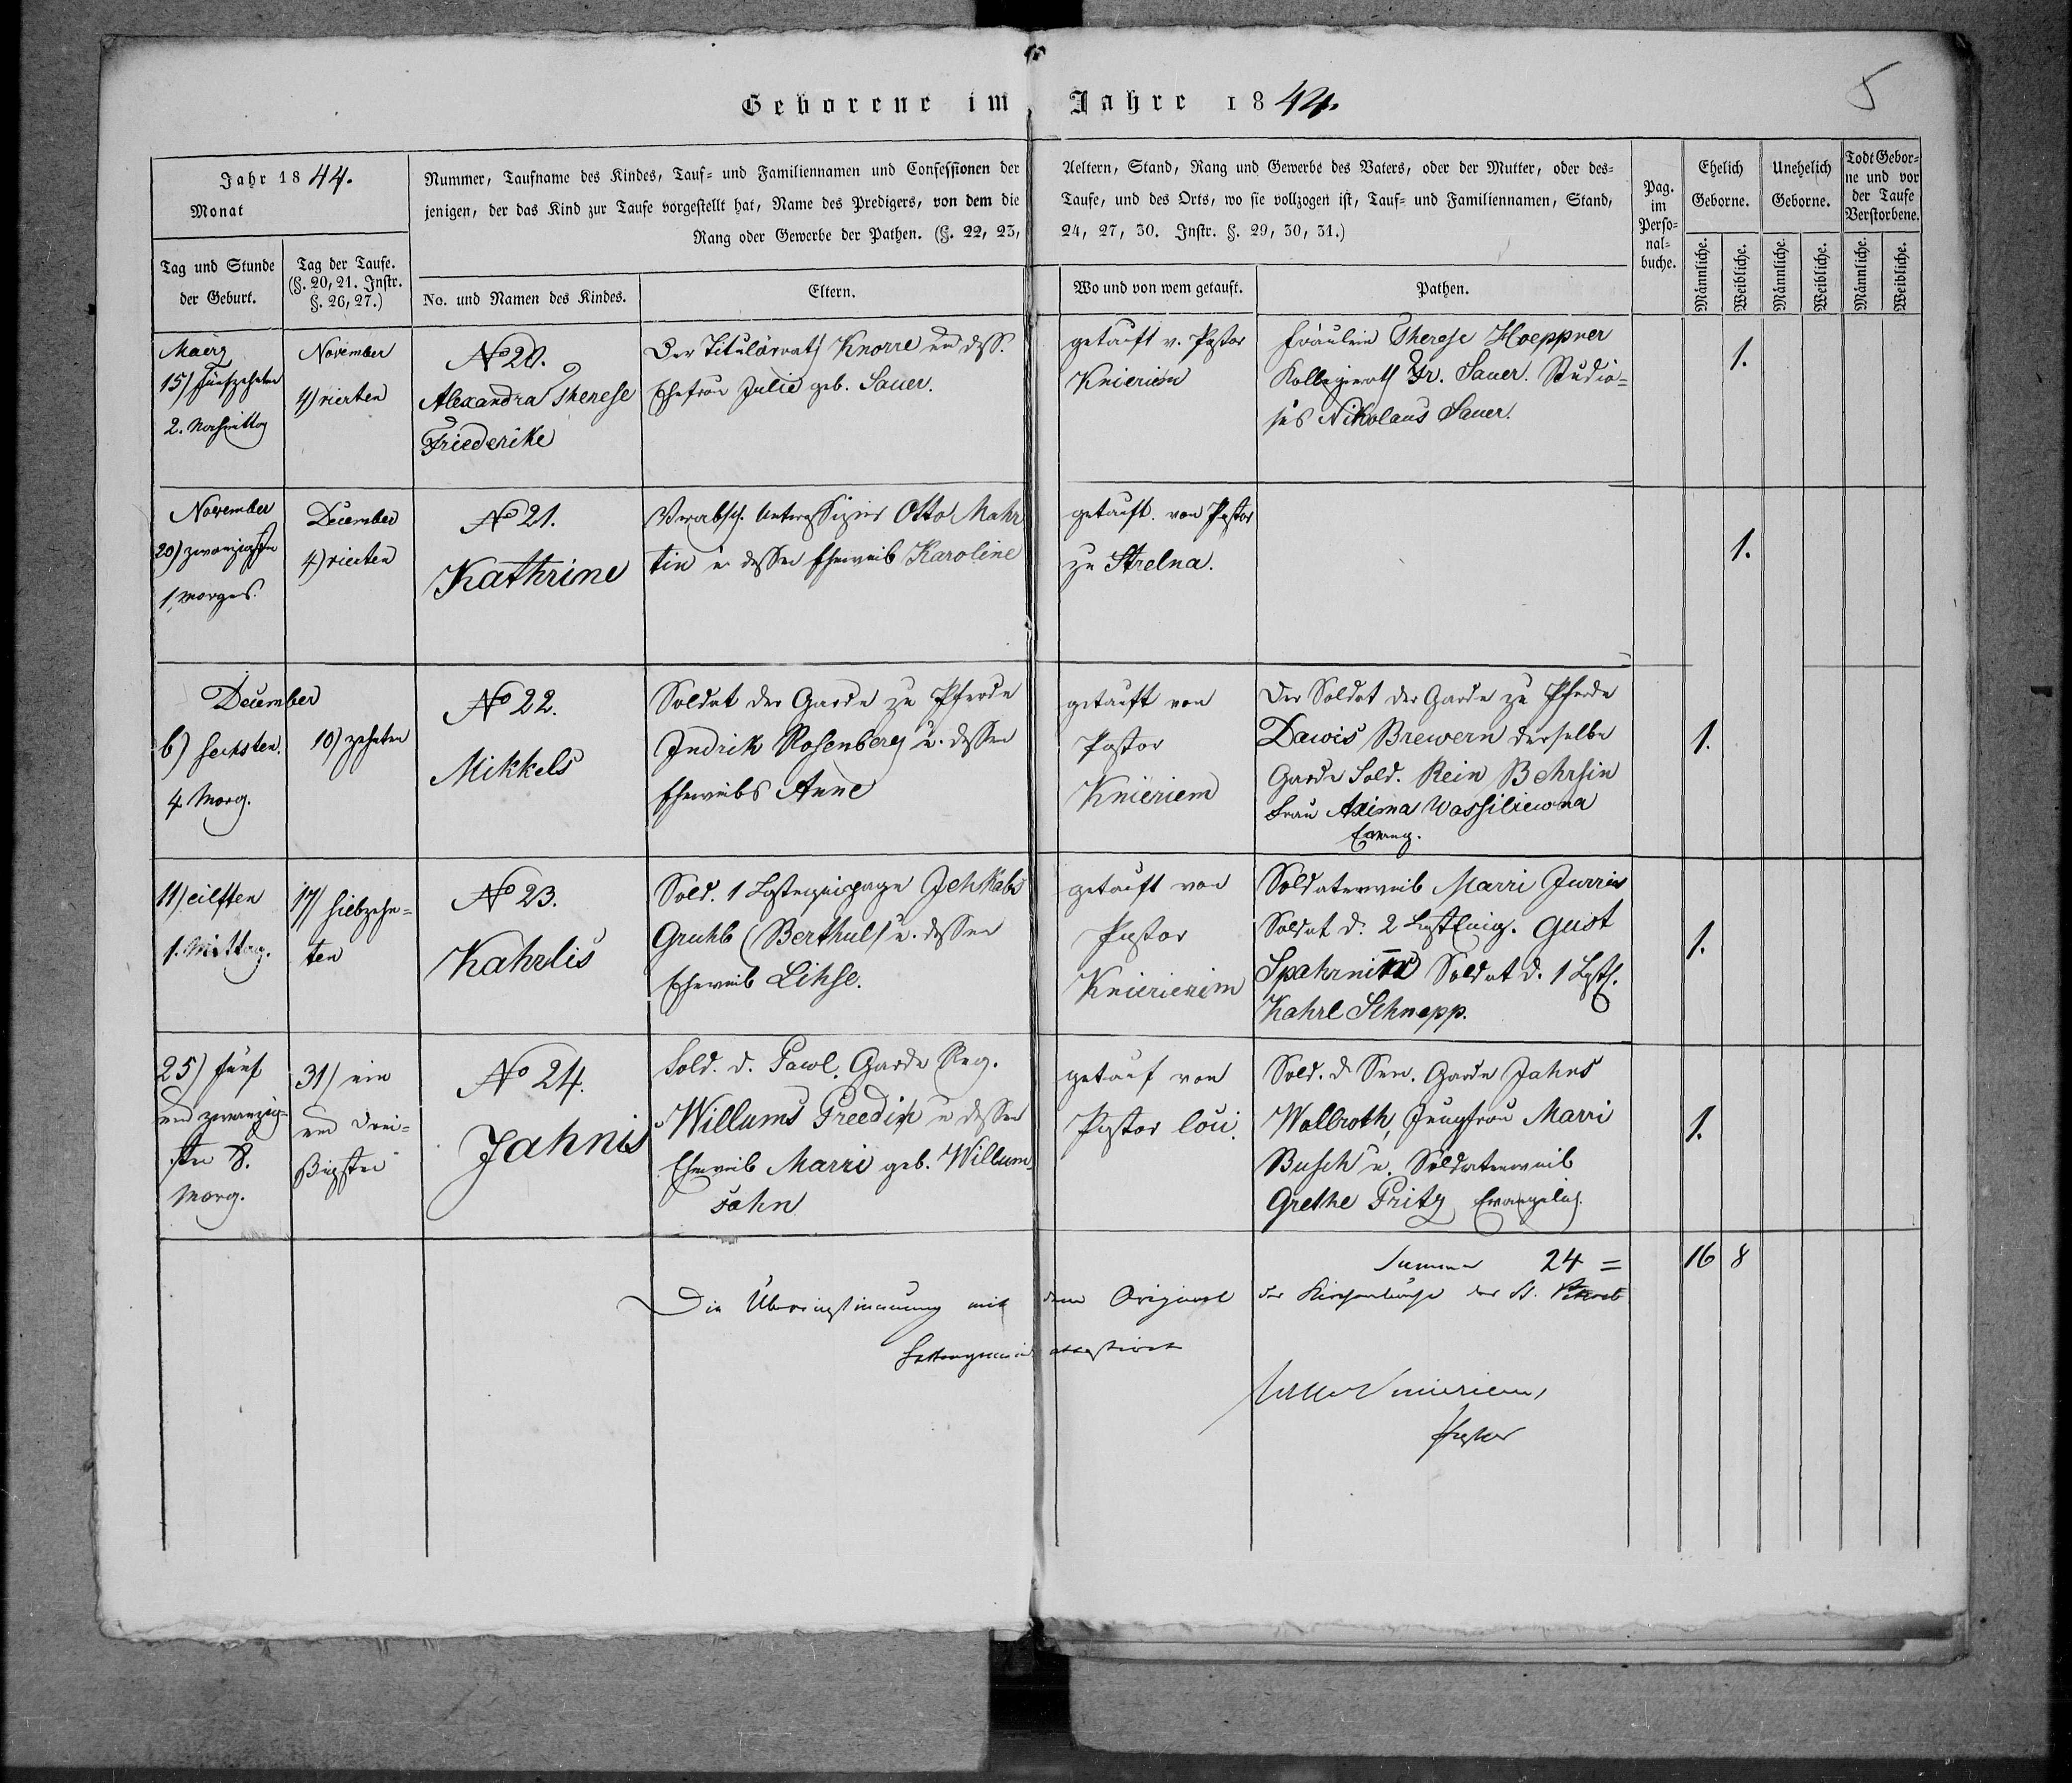 Geborene im Jahre 1844.
5
Jahr 1844.
Monat
Tag und Stunde
der Geburt.
Tag der Taufe.
(§. 20, 21. Instr.
§. 26, 27.)
Nummer, Taufname des Kindes, Tauf- und Familiennamen und Confessionen der
jenigen, der das Kind zur Taufe vorgestellt hat, Name des Predigers, von dem die
Rang oder Gewerbe der Pathen. (§. 22, 23,
No. und Namen des Kindes.
Eltern.
Aeltern, Stand, Rang und Gewerbe des Vaters, oder der Mutter, oder des-
Taufe, und des Orts, wo sie vollzogen ist, Tauf- und Familiennamen, Stand,
24, 27, 30. Instr. §. 29, 30, 31.)
Wo und von wem getauft.
Pathen.
Pag.
im
Perso-
nal-
buche.
Ehelich
Geborne.
Unehelich
Geborne.
Todt Gebor-
ne und vor
der Taufe
Verstorbene.
Männliche.
Weibliche.
Männliche.
Weibliche.
Männliche.
Weibliche.
Maerz
15) fünfzehnten
2. Nachmittag
November
4) vierten
No 20.
Alexandra Therese
Friederike
Der Titulärrath Knorre und dess.
Ehefrau Julie geb. Sauer.
getauft v. Pastor
Knieriem
Fräulein Therese Hoeppner
Kollegienrath Fr. Sauer. Studio-
sus Nikolaus Sauer.
1.
November
20) zwanzigsten
1, morgens.
December
4) vierten
No 21.
Kathrine
Verabsch. Unteroffizier Otto Mahr
tin u. dessen Eheweib Karoline
getauft. von Pastor
zu Strelna.
1.
December
6) sechsten.
4 Morg.
10) zehnten
No 22.
Mikkels
Soldat der Garde zu Pferde
Indrik Rosenberg u. dessen
Eheweibs Anne
getauft von
Pastor
Knieriem
Der Soldat der Garde zu Pferde
Dawis Brewern derselbe
Garde Sold. Rein Behrsin
Frau Axima Wassiliewna
Evang.
1.
11) eilften
1. Mittag.
17) siebzehn-
ten
No 23.
Kahrlis
Sold. 1 Jehkabs
Gruhb (Berthul) u. dessen
Eheweib Lihse.
getauft von
Pastor
Knierienim
Soldatenweib Marri Jurrin
Soldat d. 2 Gust
Spahrnin Soldat d. 1
Kahrl Schnepp.
1.
25) fünf
und zwanzig-
sten 8.
Morg.
31) ein
und drei-
ßigsten
No 24.
Jahnis
Sold. d. Pawl. Garde Reg.
Willums Freedik u dessen
Eheweib Marri geb. Willum-
sohn
getauf von
Pastor
Sold. d Sem. Garde Jahns
Wallroth, Jungfrau Marri
Busch u. Soldatenweib
Grethe Fritz Evangelisch.
1.
Summa 24 =
16 8
Die Übereinstimmung mit dem Original des Kirchenbuchs der St.
attestirt
Knieriem,
Pastor